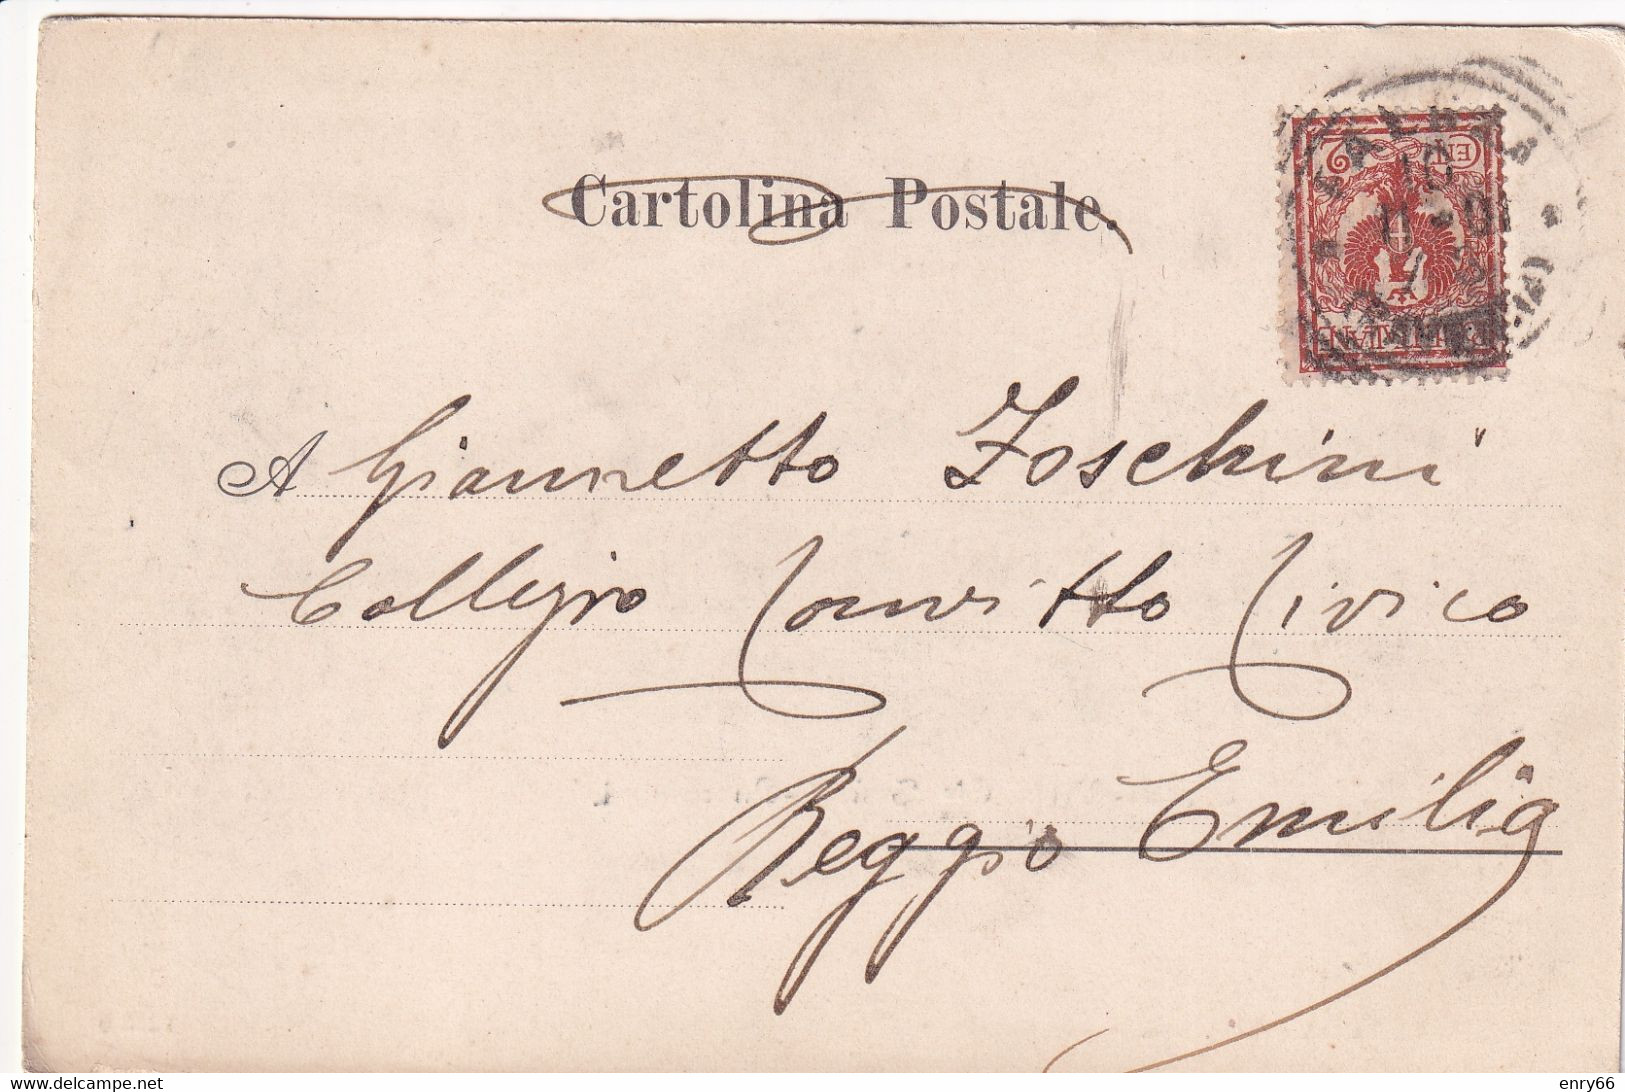 Cartolina Postale.
A Giannetto Foschini
Collegio Convitto Civico
Reggio Emilia
delcampe.net
enry66